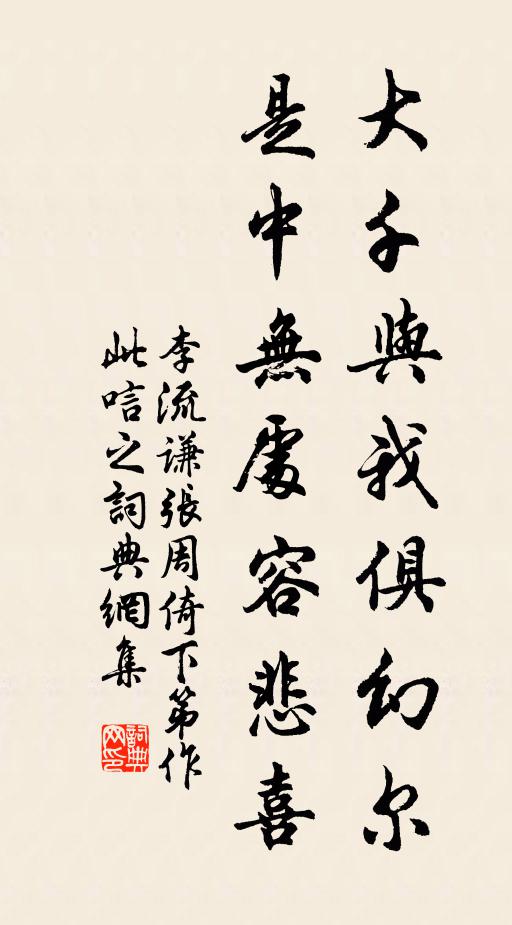 大千與我俱幻尔
是中無處容悲喜
李流谦張周倚下第作
此唁之詞典網集
詞典网印